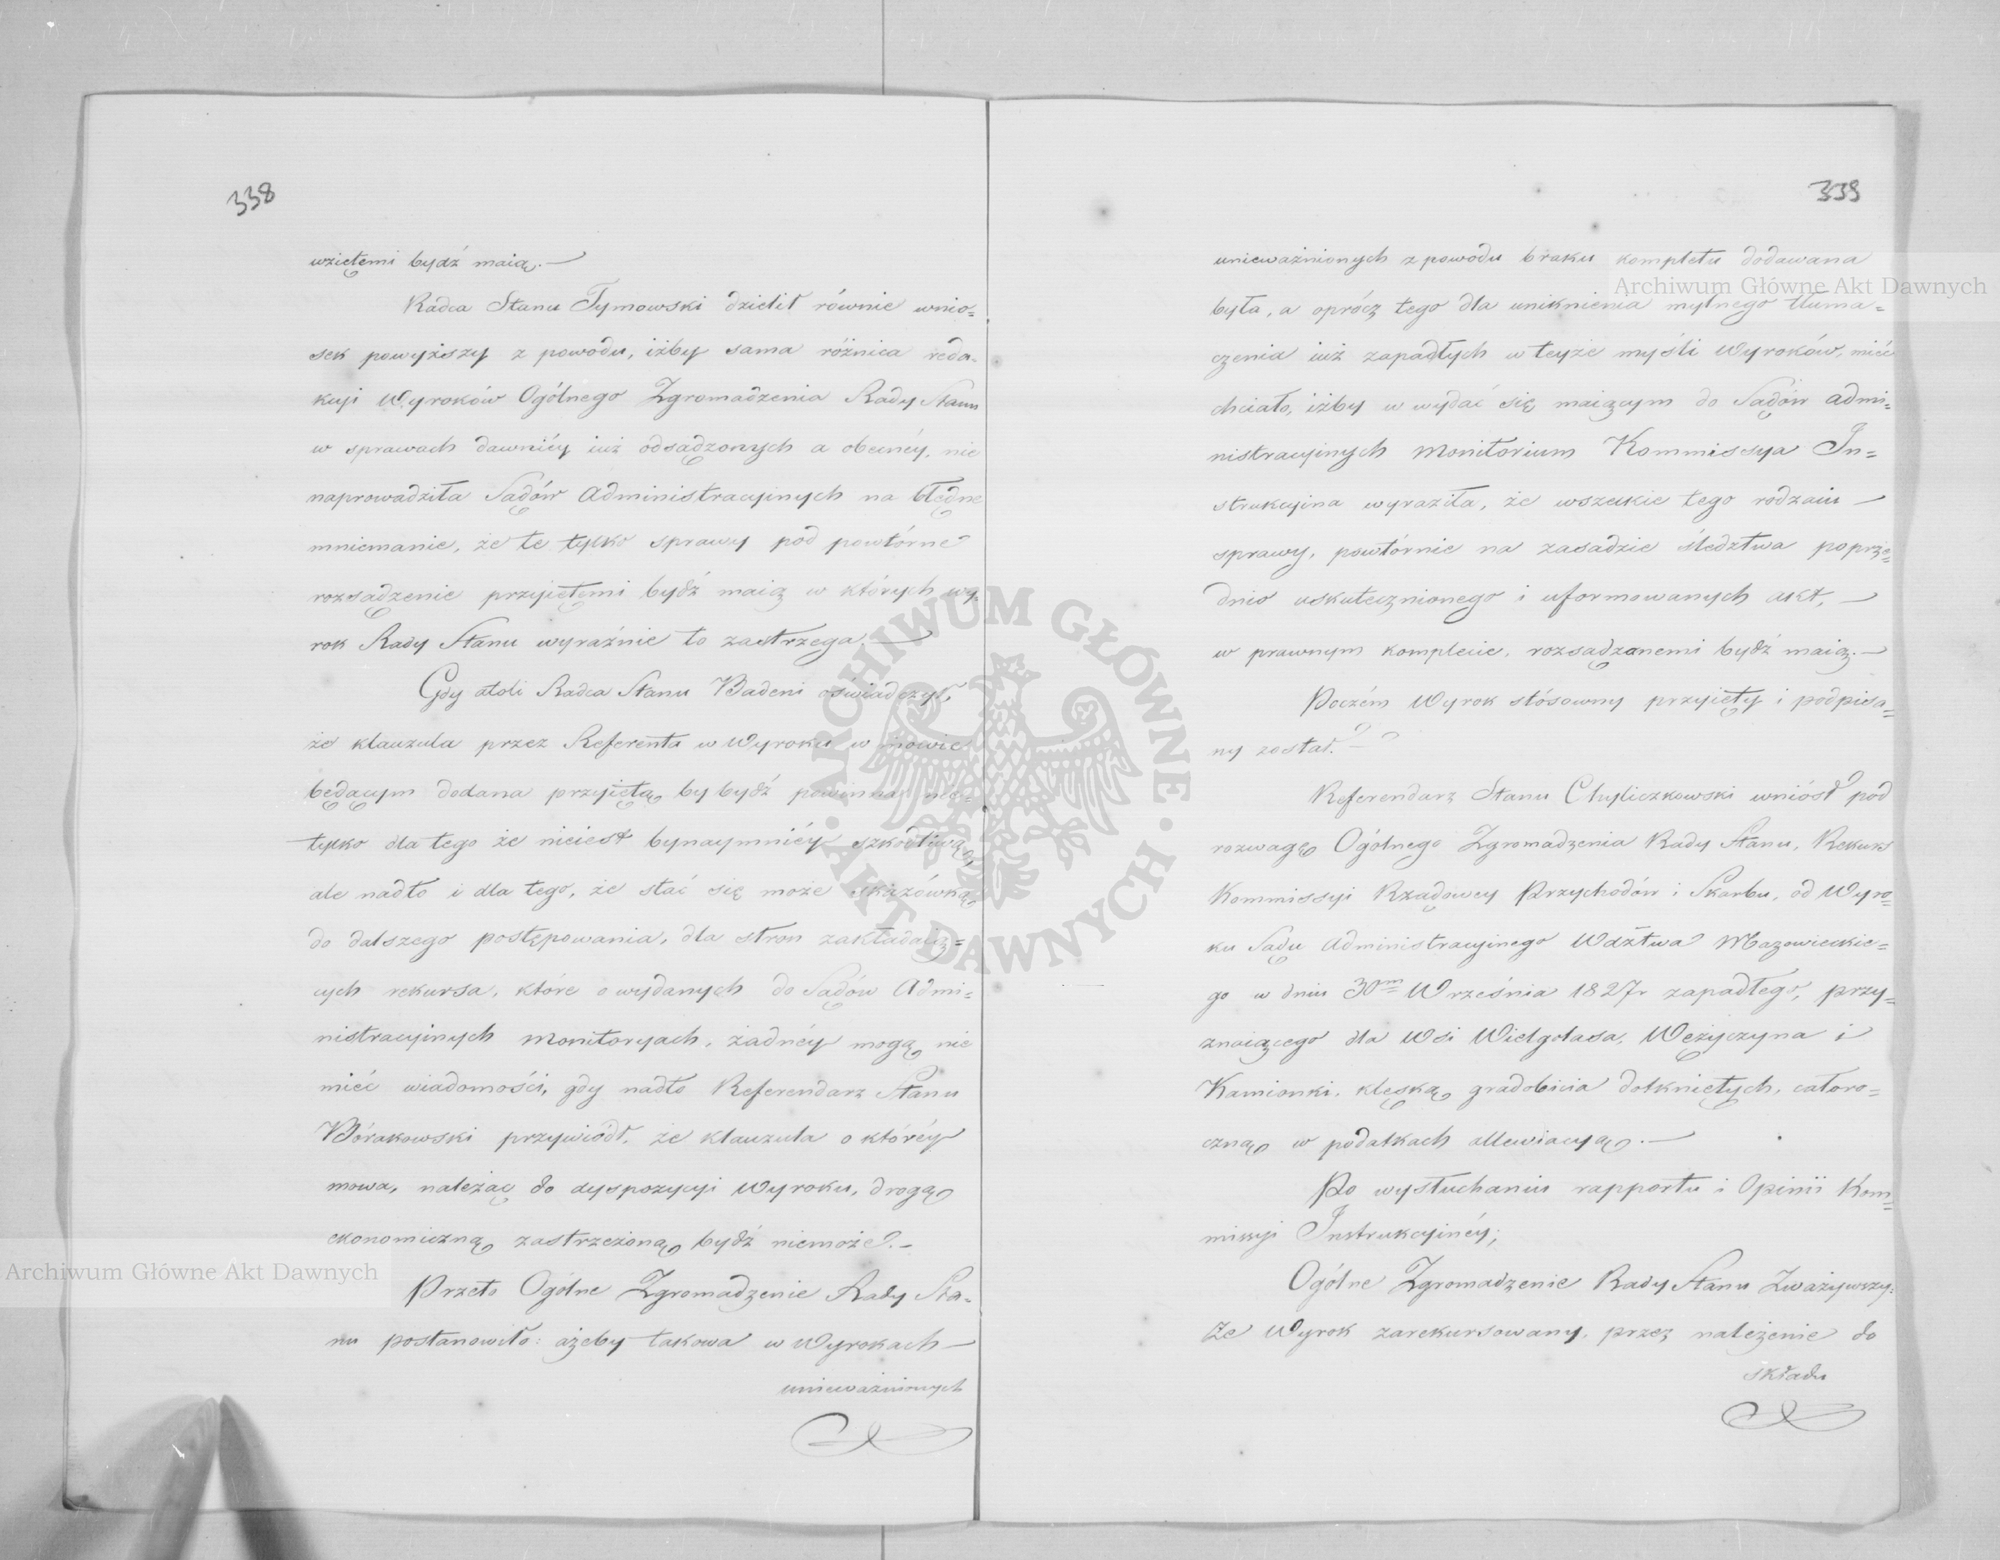 338
wziętemi bydź maią. —
Radca Stanu Tymowski dzielił równie wnio=
sek powyższy z powodu, iżby sama różnica reda=
kcyi Wyroków Ogólnego Zgromadzenia Rady Stanu
w sprawach dawniéy iuż odsądzonych a obecnéy, nie
naprowadziła Sądów Administracyinych na błędne
mniemanie, że te tylko sprawy pod powtórne
rozsądzenie przyiętemi bydź maią w których wy=
rok Rady Stanu wyraźnie to zastrzega. —
Gdy atoli Radca Stanu Badeni oświadczył,
że klauzula przez Referenta w Wyroku w mowie
będącym dodana przyiętą by bydź powinna nie=
tylko dla tego że nieiest bynaymniéy szkodliwą,
ale nadto i dla tego, że stać się może skazówką
do dalszego postępowania, dla stron zakładaią=
cych rekursa, które o wydanych do Sądów Admi=
nistracyinych monitoryach, żadnéy mogą nie
mieć wiadomości, gdy nadto Referendarz Stanu
Bórakowski przywiódł, że klauzula o któréy
mowa, należąc do dyspozycyi Wyroku, drogą
ekonomiczną zastrzeżoną bydź niemoże. —
Przeto Ogólne Zgromadzenie Rady Sta=
nu postanowiło: ażeby takowa w Wyrokach —
unieważnionych
339
unieważnionych z powodu braku kompletu dodawana
była, a oprócz tego dla uniknienia mylnego tłuma=
czenia iuż zapadłych w teyże myśli Wyroków, mieć
chciało, iżby w wydać się maiącym do Sądów Admi=
nistracyinych Monitorium Kommissya In=
strukcyina wyraziła, że wszelkie tego rodzaiu —
sprawy, powtórnie na zasadzie śledztwa poprze=
dnio uskutecznionego i uformowanych akt, —
w prawnym komplecie, rozsądzanemi bydź maią. —
Poczém Wyrok stósowny przyięty i podpisa=
ny został. —
Referendarz Stanu Chyliczkowski wniósł pod
rozwagę Ogólnego Zgromadzenia Rady Stanu, Rekurs
Kommissyi Rządowey Przychodów i Skarbu, od Wyro=
ku Sądu Administracyinego Wdztwa Mazowieckie=
go w dniu 30m Września 1827r zapadłego, przy=
znaiącego dla Wsi Wielgolasa, Wężyczyna i
Kamionki, klęską gradobicia dotkniętych, całoro=
czną w podatkach allewiacyą. —
Po wysłuchaniu rapportu i Opinii Kom=
missyi Instrukcyinéy;
Ogólne Zgromadzenie Rady Stanu Zważywszy:
Że Wyrok zarekursowany, przez należenie do
składu
Archiwum Główne Akt Dawnych
Archiwum Główne Akt Dawnych
ARCHIWUM GŁÓWNE · AKT DAWNYCH ·